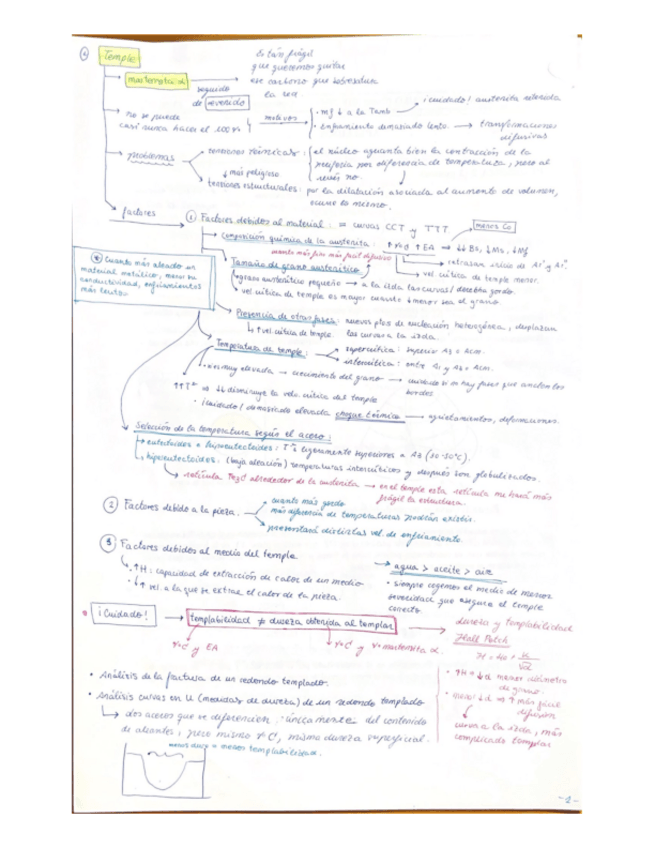 ① Temple
martensita α
seguido
de revenido
es tan frágil
que queremos quitar
ese carbono que sobresatura
la red
no se puede
casi nunca hacer el 100%
motivos
• Mf ↓ a la Tamb → ¡cuidado! austenita retenida
• Enfriamiento demasiado lento → transformaciones
difusivas
problemas
tensiones térmicas: el núcleo aguanta bien la contracción de la
periferia por diferencia de temperatura, pero al
revés no.
↓ más peligroso
tensiones estructurales: por la dilatación asociada al aumento de volumen,
ocurre lo mismo.
factores
① Factores debidos al material: = curvas CCT y TTT.
menos Co
Composición química de la austenita: ↑%C ↑EA → ↓↓ Bs, ↓Ms, ↓Mf
vel crítica de temple menor.
cuanto más fino más fácil difusivo
Tamaño de grano austenítico
grano austenítico pequeño → a la izda las curvas
vel crítica de temple es mayor cuanto menor sea el grano
* Cuanto más aleado un
material metálico, menor su
conductividad, enfriamientos
más lentos.
Presencia de otras fases: nuevos ptos de nucleación heterogénea, desplazan
↳ ↑vel crítica de temple. las curvas a la izda.
Temperatura de temple:
supercrítica: superior A3 o Acm.
intercrítica: entre A1 y A3 o Acm.
• si es muy elevada → crecimiento del grano → cuidado si no hay fases que anclen los
bordes
↑↑Tª ⇒ ↓↓ disminuye la velo. crítica del temple
• ¡cuidado! demasiado elevada choque térmico → agrietamientos, deformaciones.
Selección de la temperatura según el acero:
→ eutectoides e hipoeutectoides: Tªs ligeramente superiores a A3 (30-50ºC).
↳ hipereutectoides: (baja aleación) temperaturas intercríticas y después son globulizados.
↳ retícula Fe3C alrededor de la austenita → en el temple esta retícula me hará más
frágil la estructura.
② Factores debido a la pieza.
cuanto más gordo
más diferencia de temperaturas podrán existir.
presentará distintas vel. de enfriamiento.
③ Factores debidos al medio del temple
↑H: capacidad de extracción de calor de un medio
↓↑ vel. a la que se extrae el calor de la pieza.
→ agua > aceite > aire
• siempre cogemos el medio de menor
severidad que asegure el temple
correcto.
¡Cuidado! → templabilidad ≠ dureza obtenida al templar → dureza y templabilidad
%C y EA
%C y % martensita α.
Hall Petch
H = H0 + K/√d
• ↑H ⇒ ↓d menor diámetro
de grano.
• menor ↓d ⇒ ↑ más fácil
difusión
curva a la izda, más
complicado templar
• Análisis de la fractura de un redondo templado.
• Análisis curvas en U (medidas de dureza) de un redondo templado
↳ dos aceros que se diferencian únicamente del contenido
de aleantes, pero mismo %C, misma dureza superficial.
menos dura = menor templabilidad.
-1-